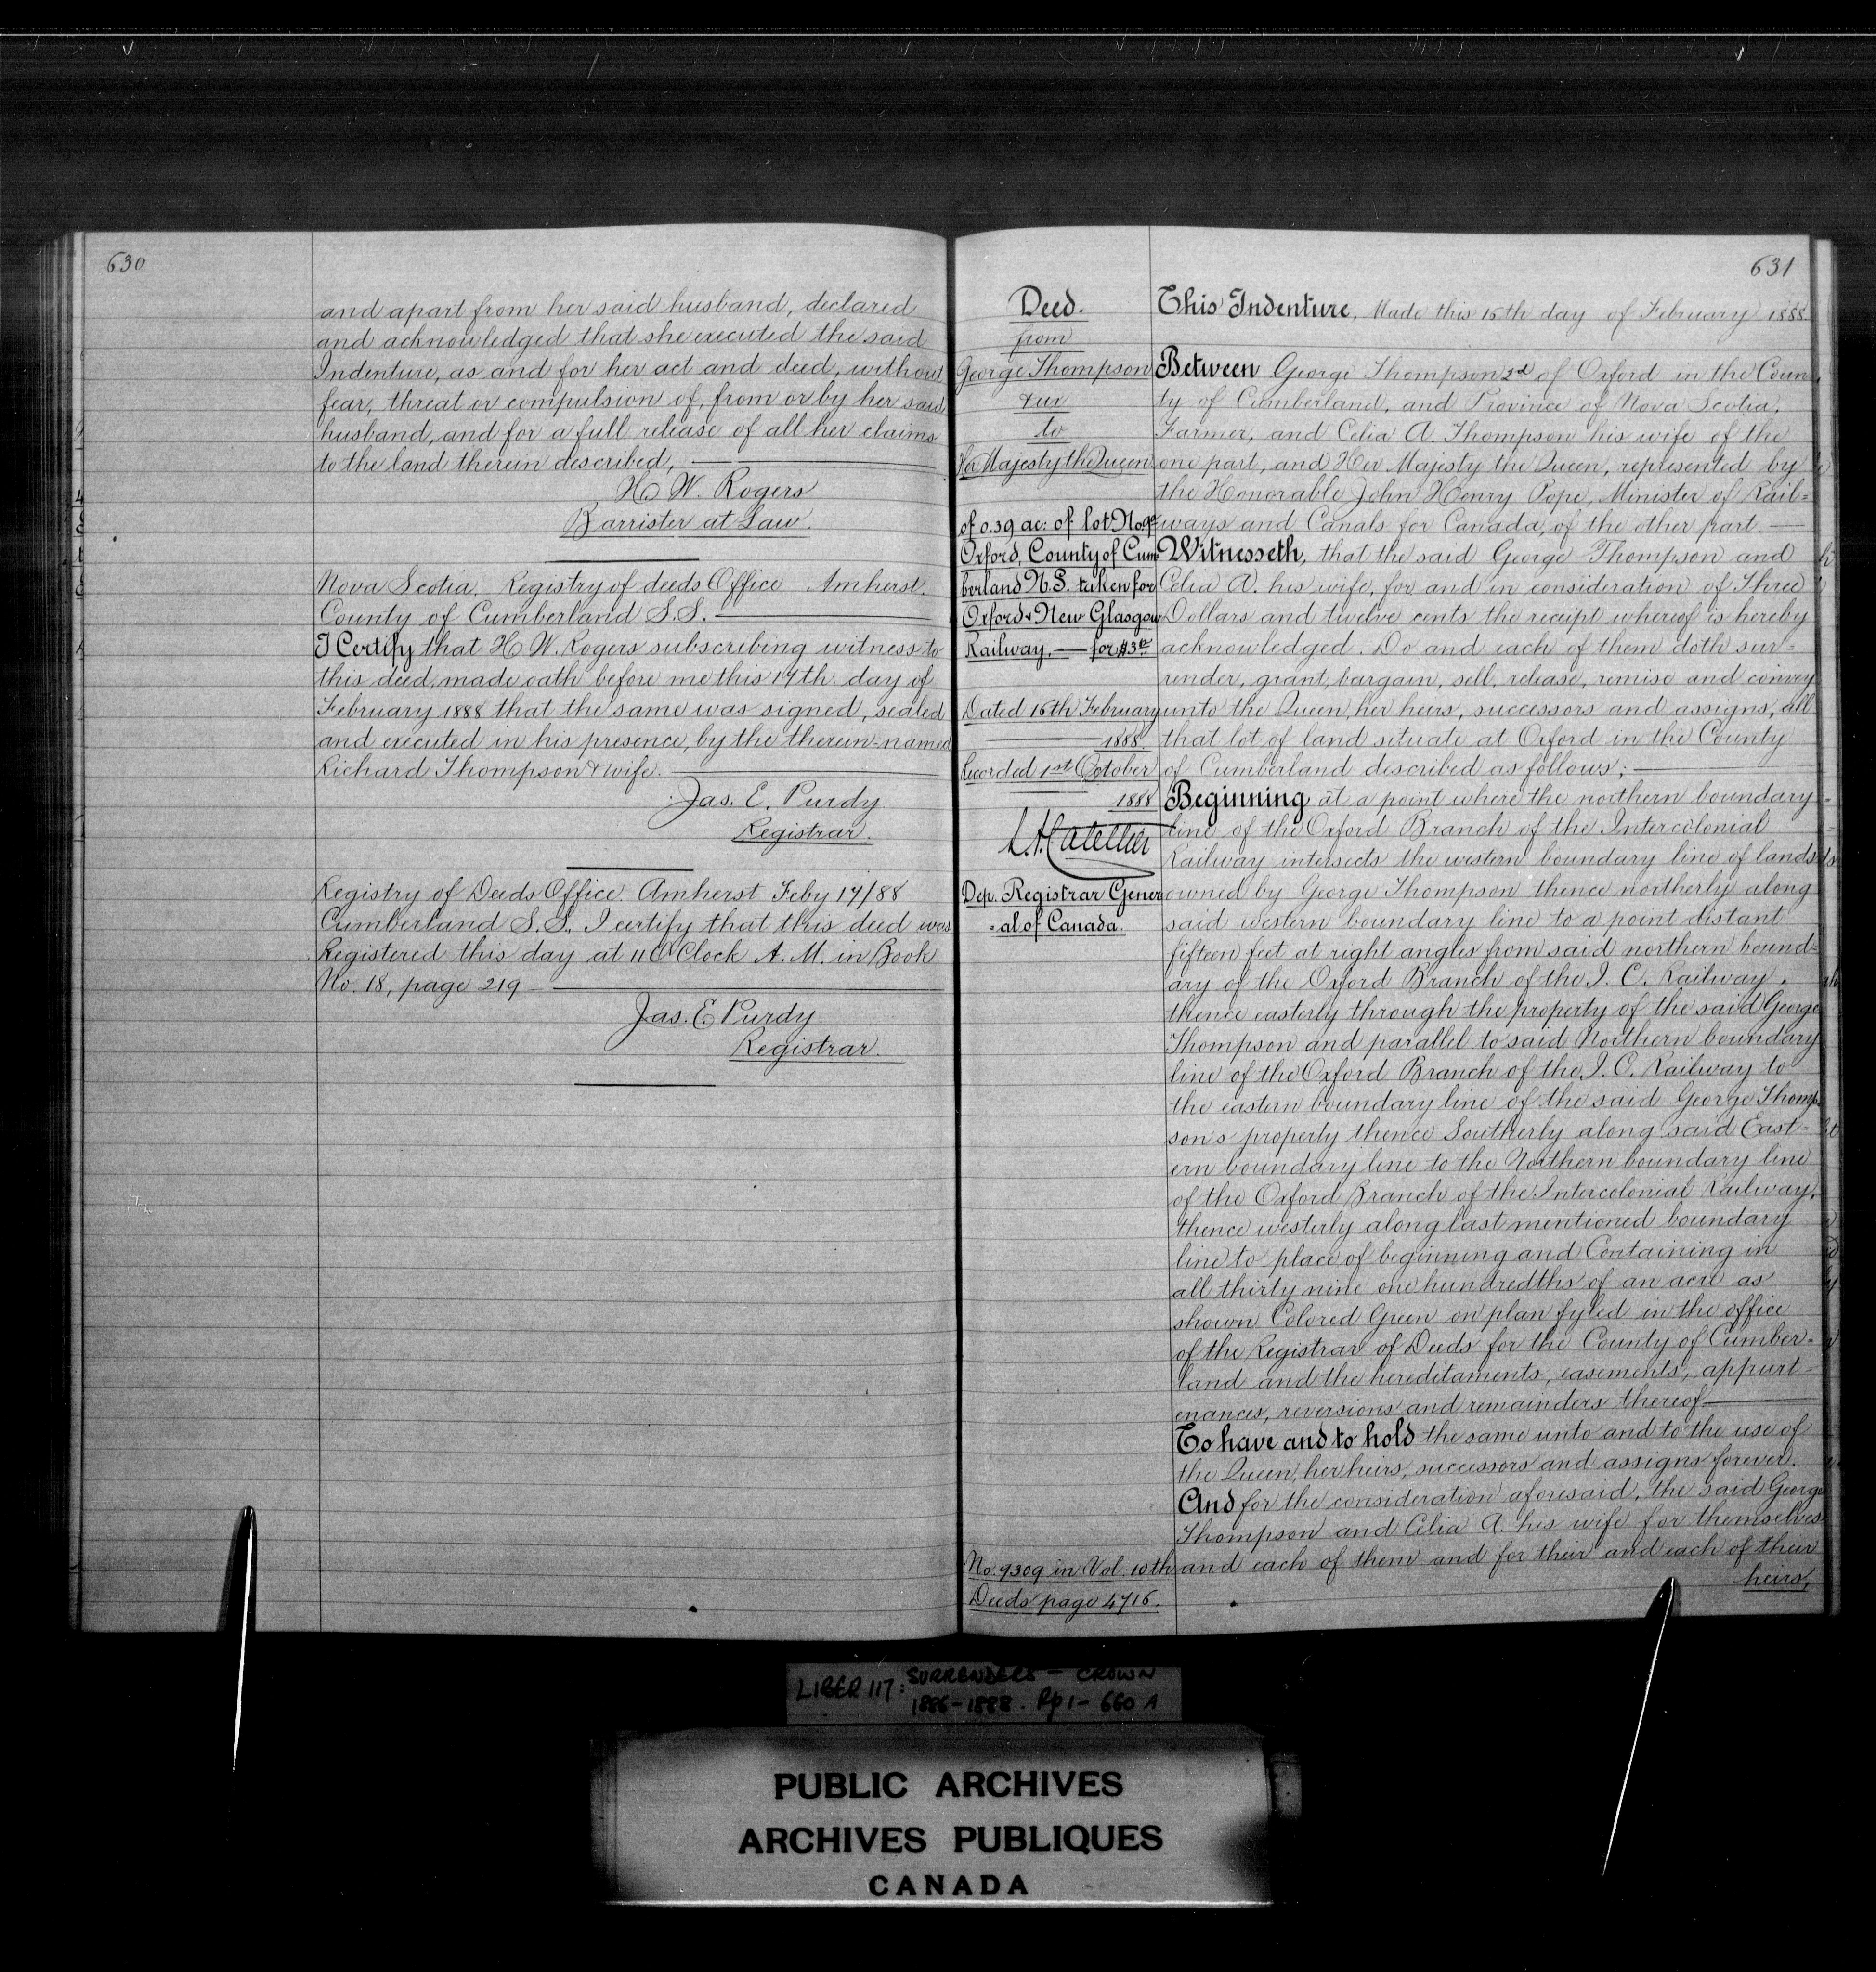 630
and apart from her said husband, declared
and acknowledged that she executed the said
Indenture, as and for her act and deed, without
fear, threat or compulsion of, from or by her said
husband, and for a full release of all her claims
to the land therein described,
H. W. Rogers
Barrister at Law.
Nova Scotia. Registry of deeds Office Amherst.
County of Cumberland S.S.
I Certify that H. W. Rogers subscribing witness to
this deed, made oath before me this 17th. day of
February 1888 that the same was signed, sealed
and executed in his presence, by the therein-named
Richard Thompson & wife.
Jas. E. Purdy
Registrar.
Registry of Deeds Office. Amherst Feby 17/88
Cumberland S.S. I certify that this deed was
Registered this day at 11 O'Clock A. M. in Book
No. 18, page 219
Jas. E Purdy.
Registrar.
631
Deed.
from
George Thompson
& ux
to
Her Majesty the Queen
of 0.39 ac: of lot No. 9a
Oxford, County of Cum
berland N.S. taken for
Oxford & New Glasgow
Railway, — for $3 12
Dated 16th February
1888.
Recorded 1st October
1888
Dep. Registrar Gener
=al of Canada.
No. 9309 in Vol: 10th
Deeds page 4716.
This Indenture, Made this 16th day of February 1888
Between George Thompson 2d of Oxford in the Coun
ty of Cumberland, and Province of Nova Scotia,
Farmer, and Celia A. Thompson his wife of the
one part, and Her Majesty the Queen, represented by
the Honorable John Henry Pope, Minister of Rail=
ways and Canals for Canada, of the other part
Witnesseth, that the said George Thompson and
Celia A. his wife, for and in consideration of Three
Dollars and twelve cents the receipt whereof is hereby
acknowledged. Do and each of them doth sur=
render, grant, bargain, sell, release, remise and convey
unto the Queen, her heirs, successors and assigns, all
that lot of land situate at Oxford in the County
of Cumberland described as follows;
Beginning at a point where the northern boundary
line of the Oxford Branch of the Intercolonial
Railway intersects the western boundary line of lands
owned by George Thompson thence northerly along
said western boundary line to a point distant
fifteen feet at right angles from said northern bound=
ary of the Oxford Branch of the I. C. Railway,
thence easterly through the property of the said George
Thompson and parallel to said Northern boundary
line of the Oxford Branch of the I. C. Railway to
the eastern boundary line of the said George Thomp
sons property thence Southerly along said East=
ern boundary line to the Northern boundary line
of the Oxford Branch of the Intercolonial Railway,
thence westerly along last mentioned boundary
line to place of beginning and Containing in
all thirty nine one hundredths of an acre as
shown Colored Green on plan fyled in the office
of the Registrar of Deeds for the County of Cumber=
land and the hereditaments, easements, appurt=
enances, reversions and remainders thereof
To have and to hold the same unto and to the use of
the Queen, her heirs, successors and assigns forever.
And for the consideration aforesaid, the said George
Thompson and Celia A. his wife for themselves
and each of them and for their and each of their
heirs,
LIBER 117: SURRENDERS - CROWN
1886-1888. Pp 1-660 A
PUBLIC ARCHIVES
ARCHIVES PUBLIQUES
CANADA